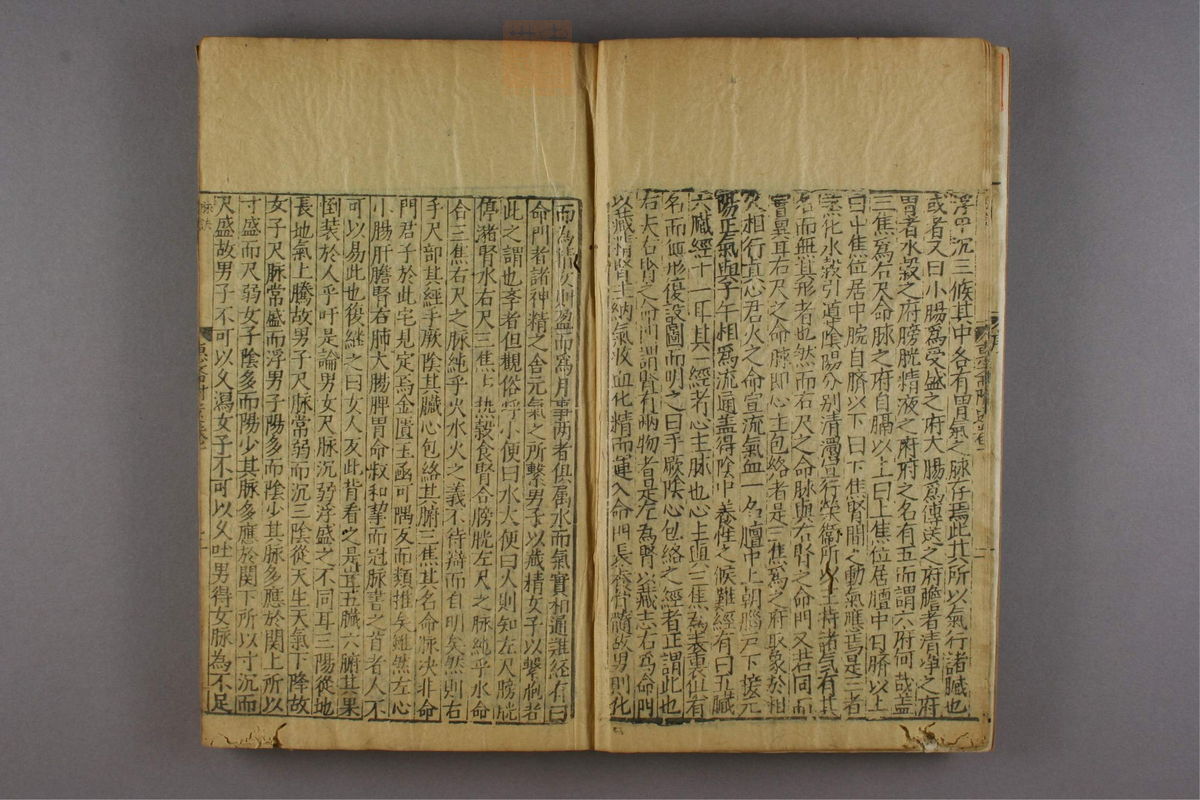 浮中沉三候其中各有胃氣之脉存焉此其所以氣行諸臟也
或者又曰小腸爲受盛之府大腸爲傳送之府膽者清淨之府
胃者水穀之府膀胱精液之府府之名有五而謂六府何哉蓋
三焦爲右尺命脉之府自膈以上曰上焦位居膻中自臍以上
曰中焦位居中脘自臍以下曰下焦腎間之動氣應焉是三者
熏化水穀引導陰陽分别清濁宣行榮衛所以主持諸氣有其
名而無其形者也然而右尺之命脉與右腎之命門又若同而
實異耳右尺之命脉即心主包絡者是三焦爲之府取象於相
火相行真心君火之命宣流氣血一名膻中上朝腦戶下接元
陽正氣與子午相爲流通蓋得陰中養性之候難經有曰五臟
六臟經十一耳其一經者心主脉也心主與三焦爲表裏俱有
名而無形復設圖而明之曰手厥陰心包絡之經者正謂此也
右夫右腎之命門謂腎有兩物者是左爲腎以藏志右爲命門
以藏精腎主納氣收血化精而運入命門長养骨髓故男則化
而為精女則盈而為月事两者俱屬水而氣實相通難經有曰
命門者諸神精之舍元氣之所繫男子以藏精女子以繫胞者
此之謂也李者但觀俗呼小便曰水大便曰火則知左尺膀胱
停潴腎水右尺三焦上热穀食腎合膀胱左尺之脉純乎水命
合三焦右尺之脉純乎火水火之義不待辯而自明矣然則右
手尺部其經手厥陰其臓心包絡其腑三焦其名命脉决非命
門君子於此宅見定焉金匱玉函可隅反而類推矣雖然左心
小腸肝膽腎右肺大腸脾胃命叔和挈而冠脉書之首者人不
可以易此也後継之曰女人反此背看之是豈五臓六腑其果
倒装於人乎吁是論男女尺脉沉弱浮盛之不同耳三陽從地
長地氣上騰故男子尺脉常弱而沉三陰從天生天氣下降故
女子尺脉常盛而浮男子陽多而陰少其脉多應於関上所以
寸盛而尺弱女子陰多而陽少其脉多應於関下所以寸沉而
尺盛故男子不可以久瀉女子不可以久吐男得女脉為不足